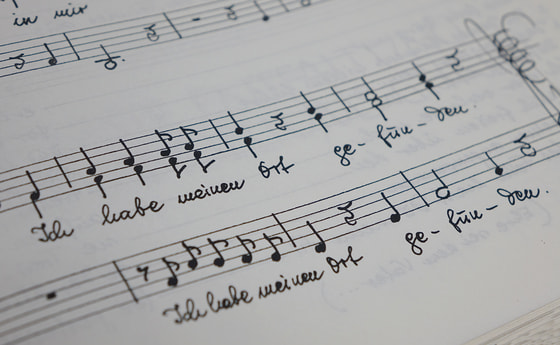 in mir
Ich habe meinen Ort ge-fun-den.
Ich habe meinen Ort ge-fun-den.